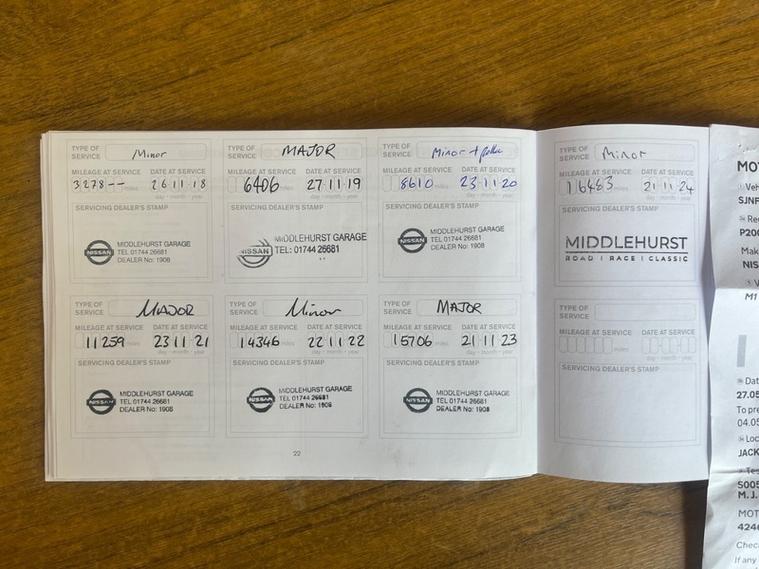 TYPE OF SERVICE Minor
MILEAGE AT SERVICE DATE AT SERVICE
3278-- 26 11 18
day - month - year
SERVICING DEALER'S STAMP
NISSAN
MIDDLEHURST GARAGE
TEL 01744 26681
DEALER No: 1908
TYPE OF SERVICE MAJOR
MILEAGE AT SERVICE DATE AT SERVICE
6406 miles 27 11 19
day - month - year
SERVICING DEALER'S STAMP
NISSAN
MIDDLEHURST GARAGE
TEL: 01744 26681
TYPE OF SERVICE Minor +
MILEAGE AT SERVICE DATE AT SERVICE
8610 miles 23 11 20
day - month - year
SERVICING DEALER'S STAMP
NISSAN
MIDDLEHURST GARAGE
TEL 01744 26681
DEALER No: 1908
TYPE OF SERVICE Minor
MILEAGE AT SERVICE DATE AT SERVICE
16483 21 11 24
day - month - year
SERVICING DEALER'S STAMP
MIDDLEHURST
ROAD | RACE | CLASSIC
TYPE OF SERVICE MAJOR
MILEAGE AT SERVICE DATE AT SERVICE
11259 23 11 21
day - month - year
SERVICING DEALER'S STAMP
NISSAN
MIDDLEHURST GARAGE
TEL 01744 26681
DEALER No: 1908
TYPE OF SERVICE Minor
MILEAGE AT SERVICE DATE AT SERVICE
14346 miles 22 11 22
day - month - year
SERVICING DEALER'S STAMP
NISSAN
MIDDLEHURST GARAGE
TEL 01744 26681
DEALER No: 1908
TYPE OF SERVICE MAJOR
MILEAGE AT SERVICE DATE AT SERVICE
15706 miles 21 11 23
day - month - year
SERVICING DEALER'S STAMP
NISSAN
MIDDLEHURST GARAGE
TEL 01744 26681
DEALER No: 1908
TYPE OF SERVICE
MILEAGE AT SERVICE DATE AT SERVICE
miles
day - month - year
SERVICING DEALER'S STAMP
22
MO
Veh
SJNF
Re
P20
Mak
NIS
V
M1
Dat
27.05
To pre
04.05
Loc
JACK
Tes
S005
M. J.
MOT
4246
Chec
If any